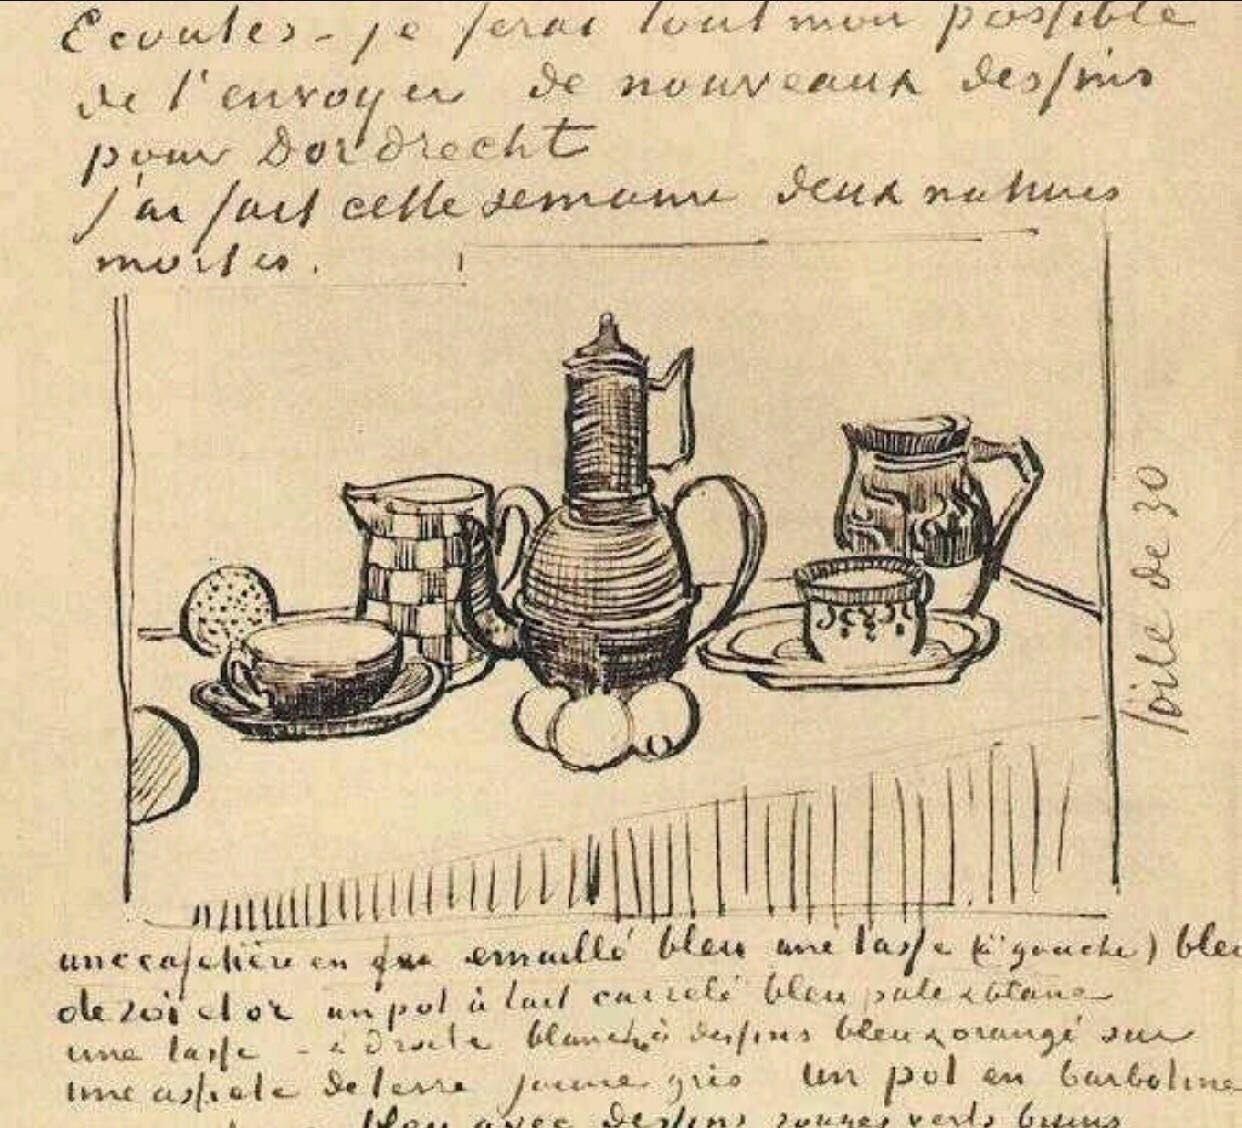 Ecoutes - je ferai tout mon possible
de t'envoyer de nouveaux dessins
pour Dordrecht
j'ai fait cette semaine deux natures
mortes.
Toile de 30
une cafetière en fer emaillé bleu une tasse (à gauche) bleu
de roi et or un pot à lait carrelé bleu pale & blanc
une tasse - à droite blanche à dessins bleu & orangé sur
une assiete de terre jaune gris un pot en barbotine
bleu avec dessins rouges verts bruns